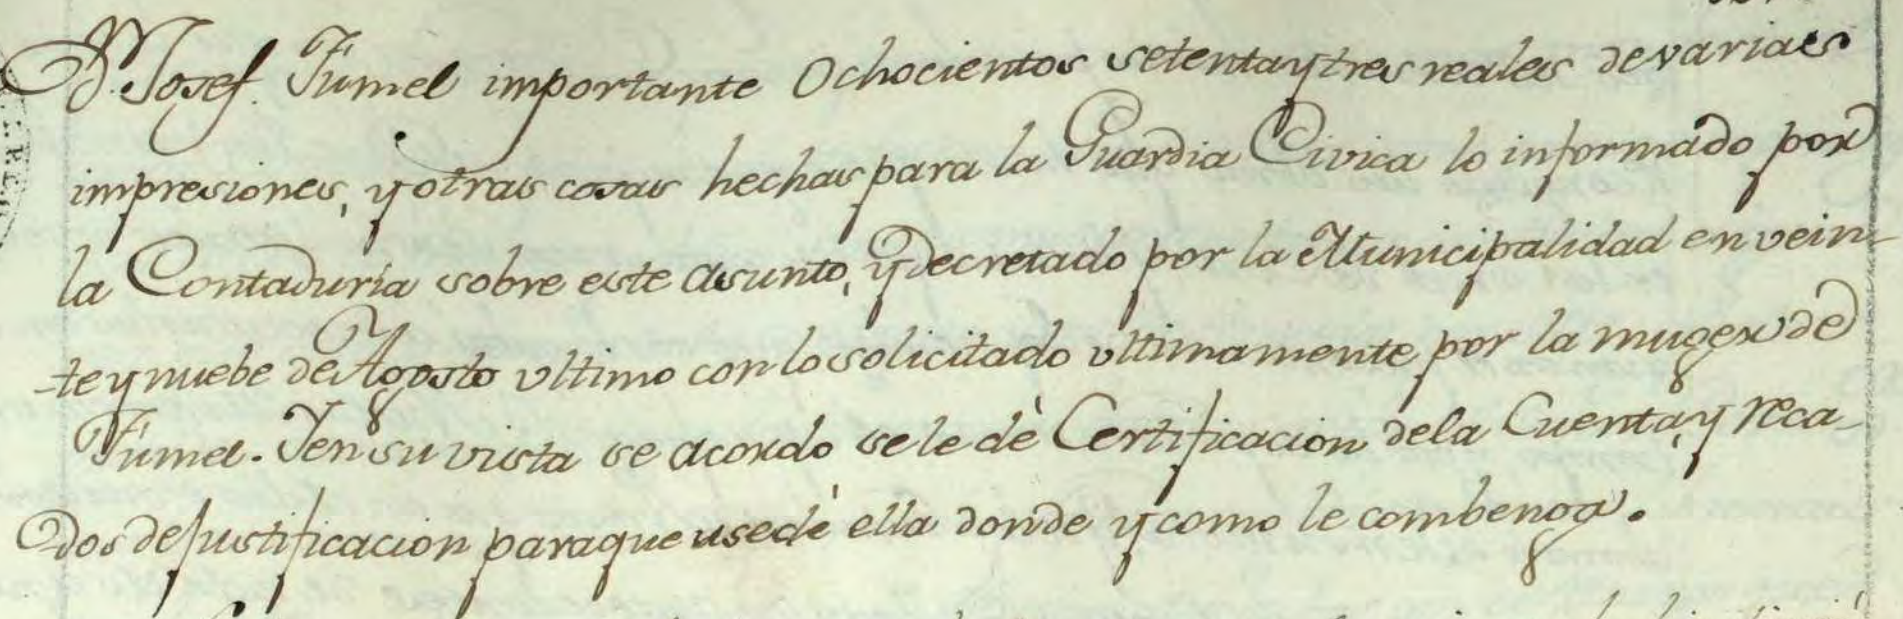 D. Josef. Fumel importante Ochocientos setenta y tres reales de varias
impresiones, y otras cosas hechas para la Guardia Civica lo informado por
la Contaduría sobre este asunto, y decretado por la Municipalidad en vein-
-te y nuebe de Agosto ultimo con lo solicitado ultimamente por la muger de
Fumel. Y en su vista se acordo se le dè Certificacion de la Cuenta, y reca-
dos de justificacion para que use dè ella donde y como le combenga.